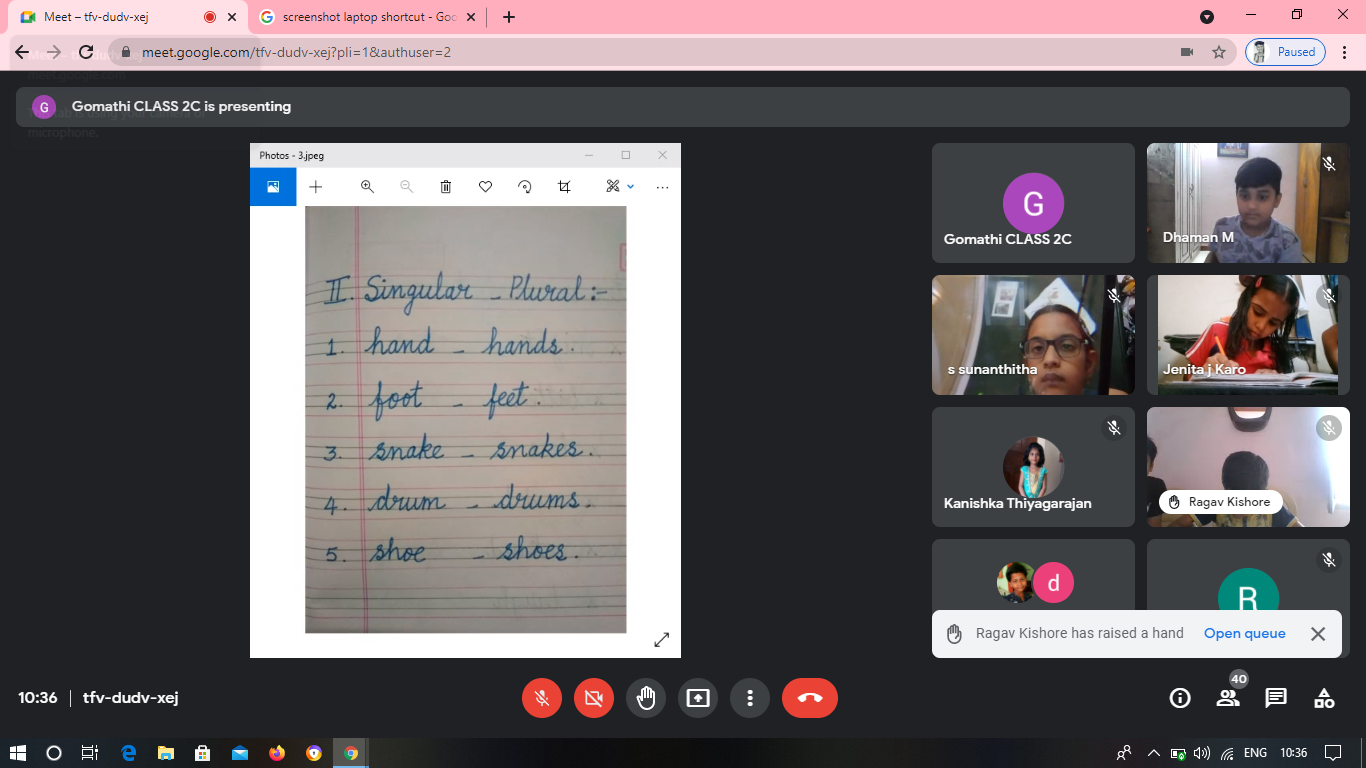 Meet – tfv-dudv-xej
screenshot laptop shortcut - Goo
meet.google.com/tfv-dudv-xej?pli=1&authuser=2
Paused
G Gomathi CLASS 2C is presenting
microphone.
Photos - 3.jpeg
II. Singular - Plural :-
1. hand - hands.
2. foot - feet.
3. snake - snakes.
4. drum - drums.
5. shoe - shoes.
G
Gomathi CLASS 2C
Dhaman M
s sunanthitha
Jenita j Karo
Kanishka Thiyagarajan
Ragav Kishore
d
R
Ragav Kishore has raised a hand Open queue
10:36 | tfv-dudv-xej
40
ENG 10:36